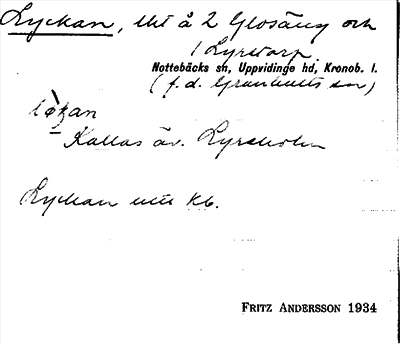 Lyckan, lht å 2 Glosäng och
1 Lyretorp.
Nottebäcks sn, Uppvidinge hd, Kronob. l.
(f. d. Granhults sn)
Kallas äv. Lyreholm
Lyckan utt Kb.
FRITZ ANDERSSON 1934